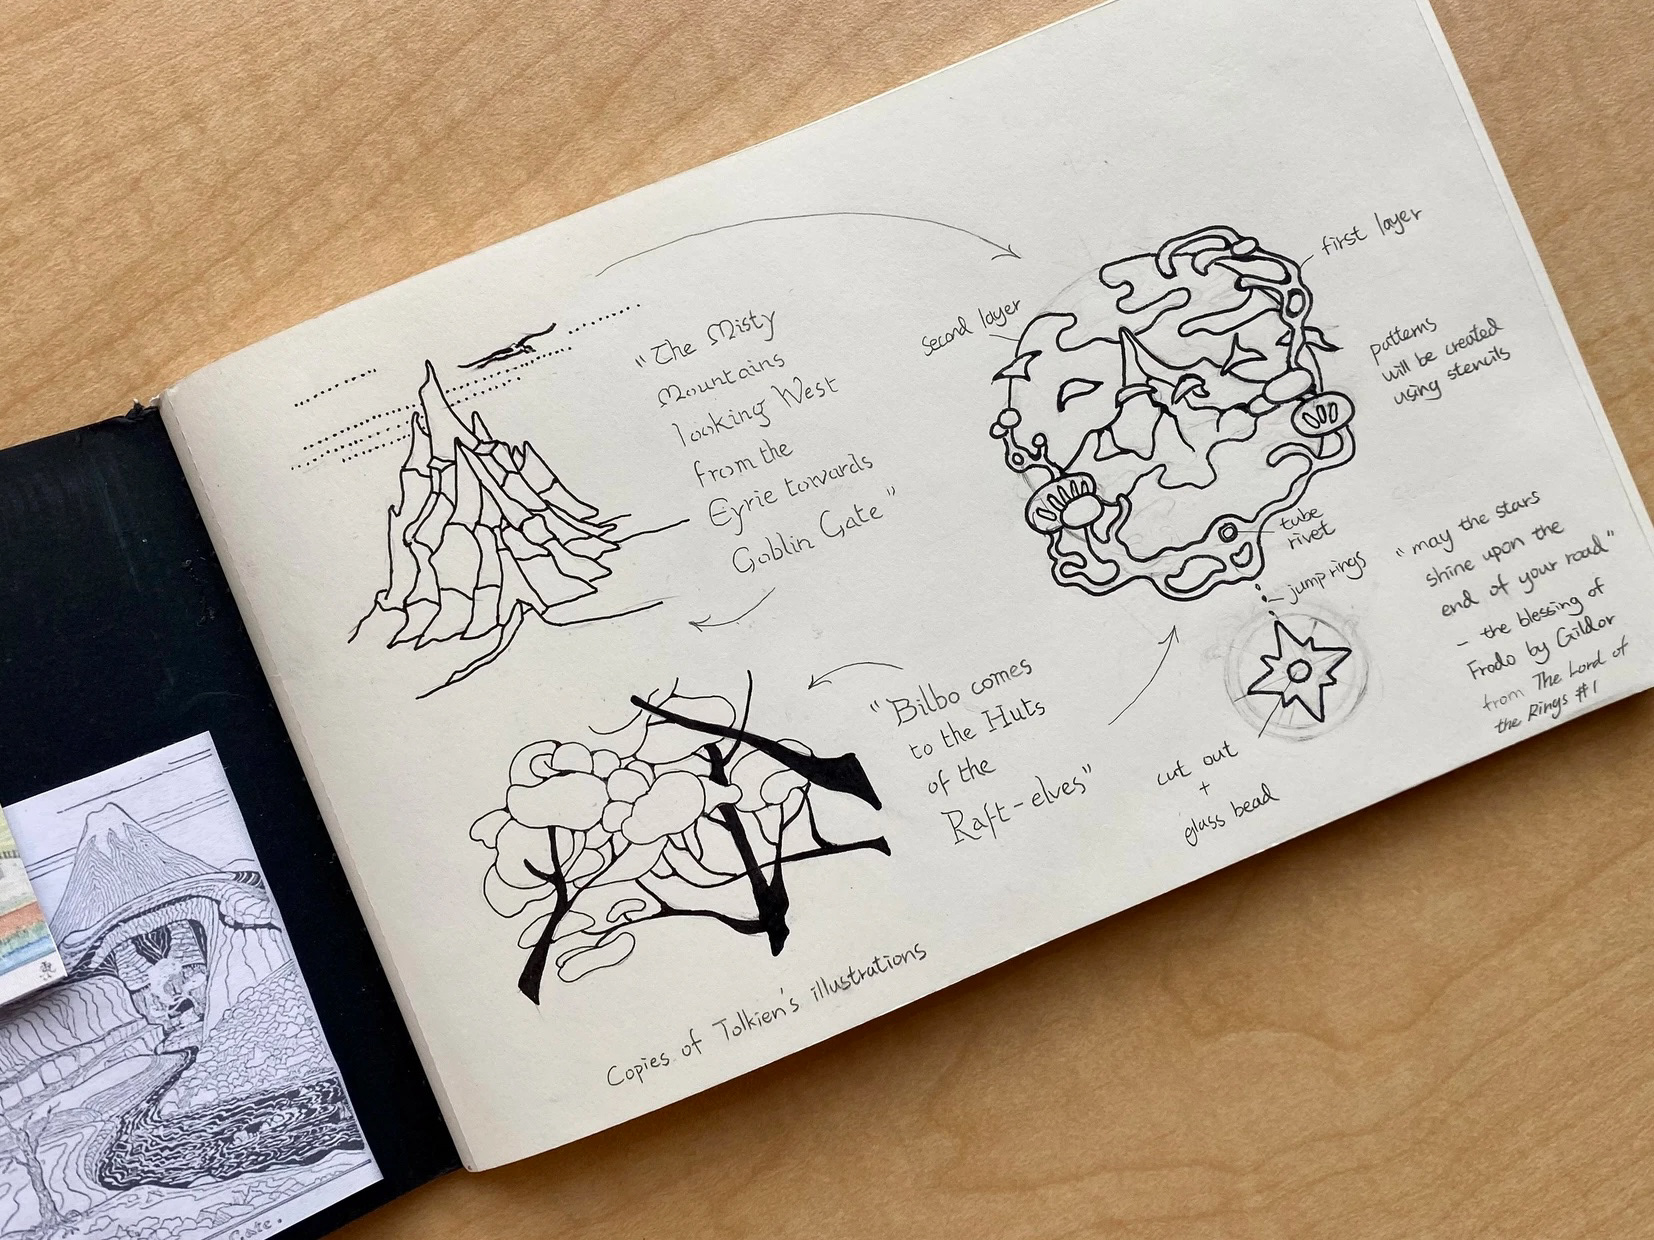 "The Misty
Mountains
looking West
from the
Eyrie towards
Goblin Gate"
"Bilbo comes
to the Huts
of the
Raft-elves"
Copies of Tolkien's illustrations
second layer
first layer
patterns
will be created
using stencils
tube
rivet
jump rings
cut out
+
glass bead
"may the stars
shine upon the
end of your road"
- the blessing of
Frodo by Gildor
from The Lord of
the Rings #1
Gate.